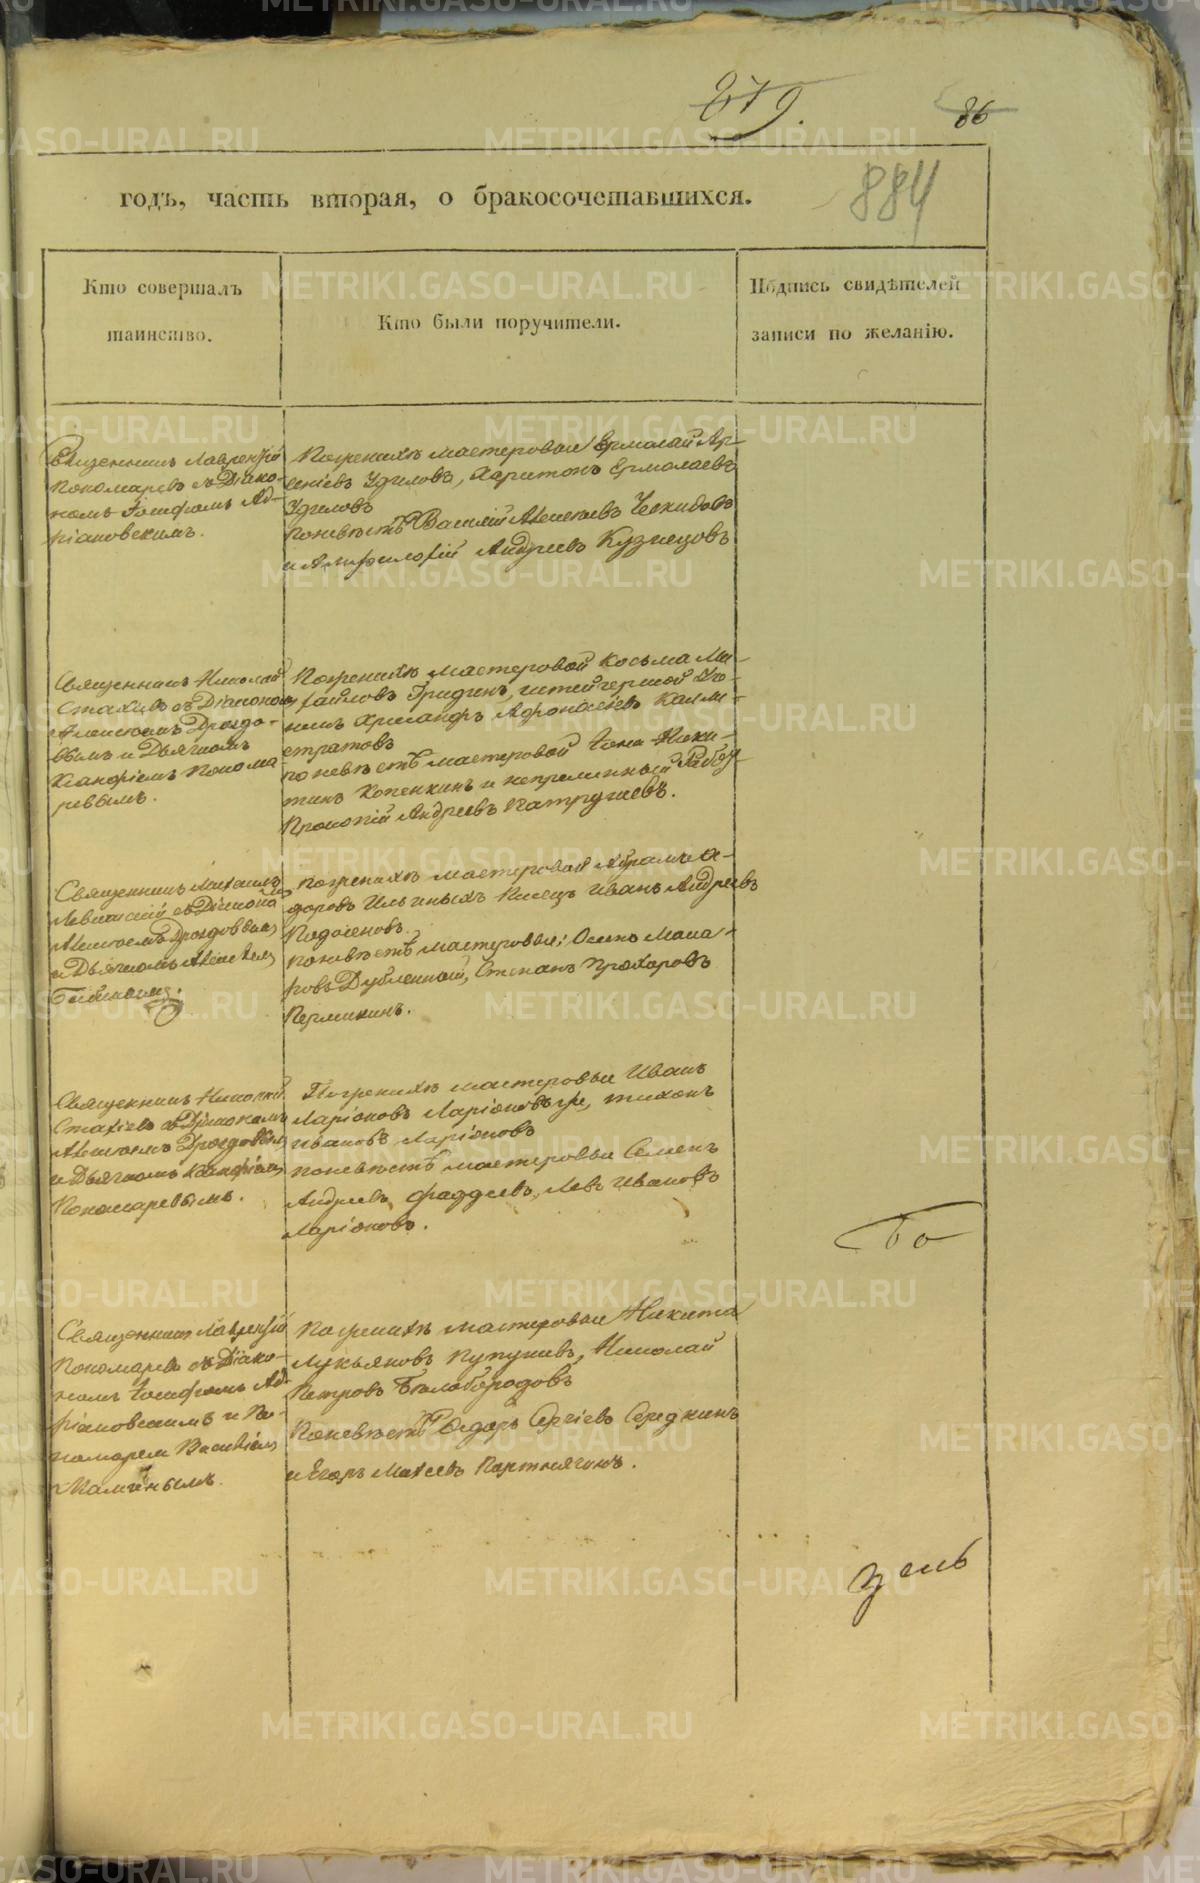 879.
86
884
годъ, часть вторая, о бракосочетавшихся.
Кто совершалъ
таинство.
Кто были поручители.
Подпись свидѣтелей
записи по желанію.
Священникъ Лаврентій
Пономаревъ съ Діако-
номъ Іосифомъ Ад-
ріановскимъ.
По женихѣ мастеровые Ермолай Ар-
сеніевъ Удиловъ, Харитонъ Ермолаевъ
Удиловъ
по невѣстѣ Василій Алексѣевъ
и Амфилофій Андреевъ Кузнецовъ
Священникъ Николай
Стахіевъ съ Діакономъ
Алексѣемъ Дроздо-
вымъ и Дьячкомъ
Ксанфіемъ Понома-
ревымъ.
По женихѣ мастеровой Косьма Ми-
хайловъ Гридинъ,
Александръ Афонасіевъ Калли-
стратовъ
по невѣстѣ мастеровой Іона Ники-
тинъ Копенкинъ и непремѣнный
Прокопій Андреевъ Патрушевъ.
Священникъ Михаилъ
Левитскій съ Діакономъ
Алексѣемъ Дроздовымъ
и Дьячкомъ Алексѣемъ
По женихѣ мастеровой Абрамъ Ѳ-
доровъ Ильиныхъ Писецъ Иванъ Андреевъ
по невѣстѣ мастеровые: Осипъ Мака-
ровъ Дубленной, Степанъ Прохоровъ
Пермикинъ.
Священникъ Николай
Стахіевъ съ Діакономъ
Алексѣемъ Дроздовымъ
и Дьячкомъ Ксанфіемъ
Пономаревымъ.
По женихѣ мастеровые Иванъ
Ларіоновъ Ларіоновъ же, Тихонъ
Ивановъ Ларіоновъ
по невѣстѣ мастеровые Семенъ
Андреевъ Фаддеевъ, Левъ Ивановъ
Ларіоновъ.
Священникъ Лаврентій
Пономаревъ съ Діако-
номъ Іосифомъ Ад-
ріановскимъ и По-
номаремъ Василіемъ
По женихѣ мастеровые Никита
Лукьяновъ Пупышевъ, Николай
Петровъ Бѣлобородовъ
По невѣстѣ Ѳедоръ Сергіевъ Середкинъ
и Егоръ Матеевъ Портнягинъ.
METRIKI.GASO-URAL.RU